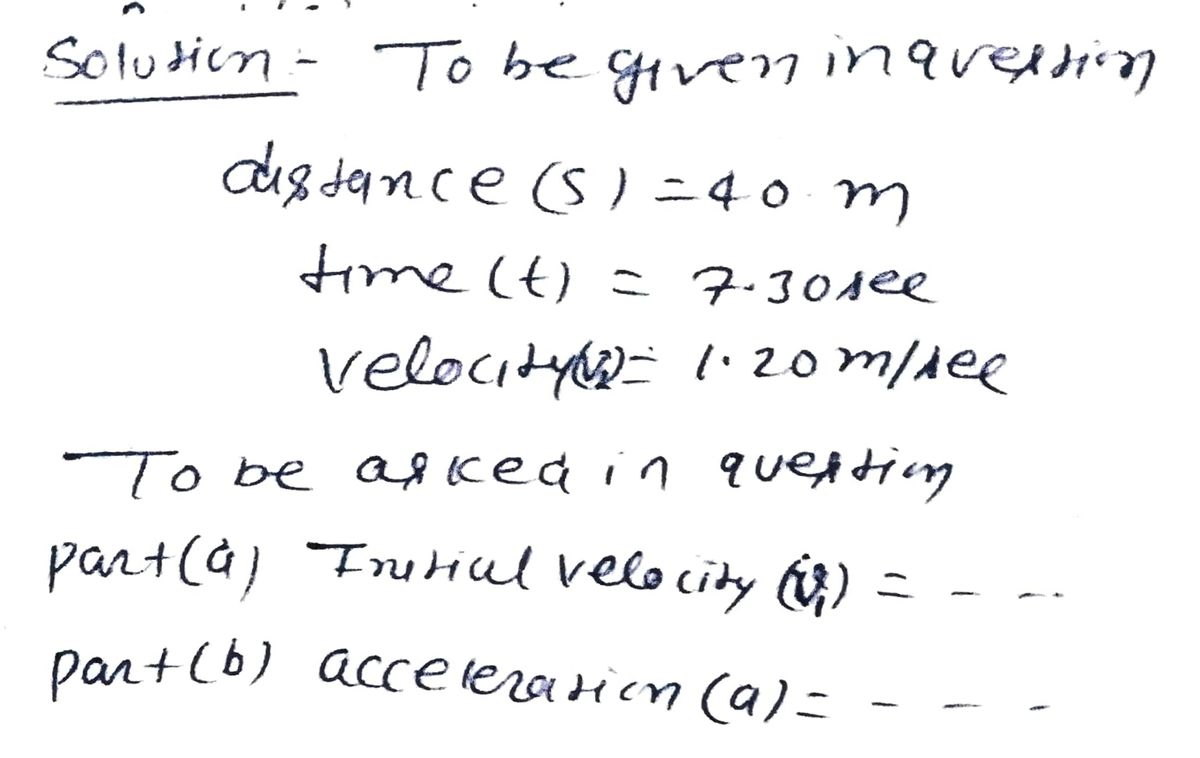 Solution - To be given in question
distance (S) = 40 m
time (t) = 7.30 sec
velocity (v₂) = 1.20 m/sec
To be asked in question
part (a) Initial velocity (v₁) = - - -
part (b) acceleration (a) = - - -